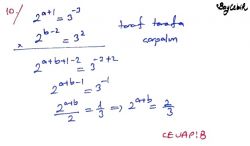 10-)
2^{a+1} = 3^{-3}
x 2^{b-2} = 3^2
taraf tarafa
çarpalım
2^{a+b+1-2} = 3^{-3+2}
2^{a+b-1} = 3^{-1}
\frac{2^{a+b}}{2} = \frac{1}{3} ⇒ 2^{a+b} = \frac{2}{3}
CEVAP: B